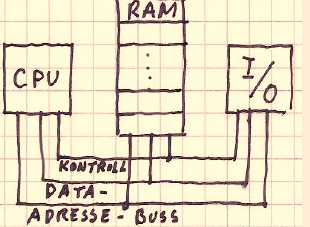 RAM
CPU
I/O
KONTROLL
DATA-
ADRESSE - BUSS